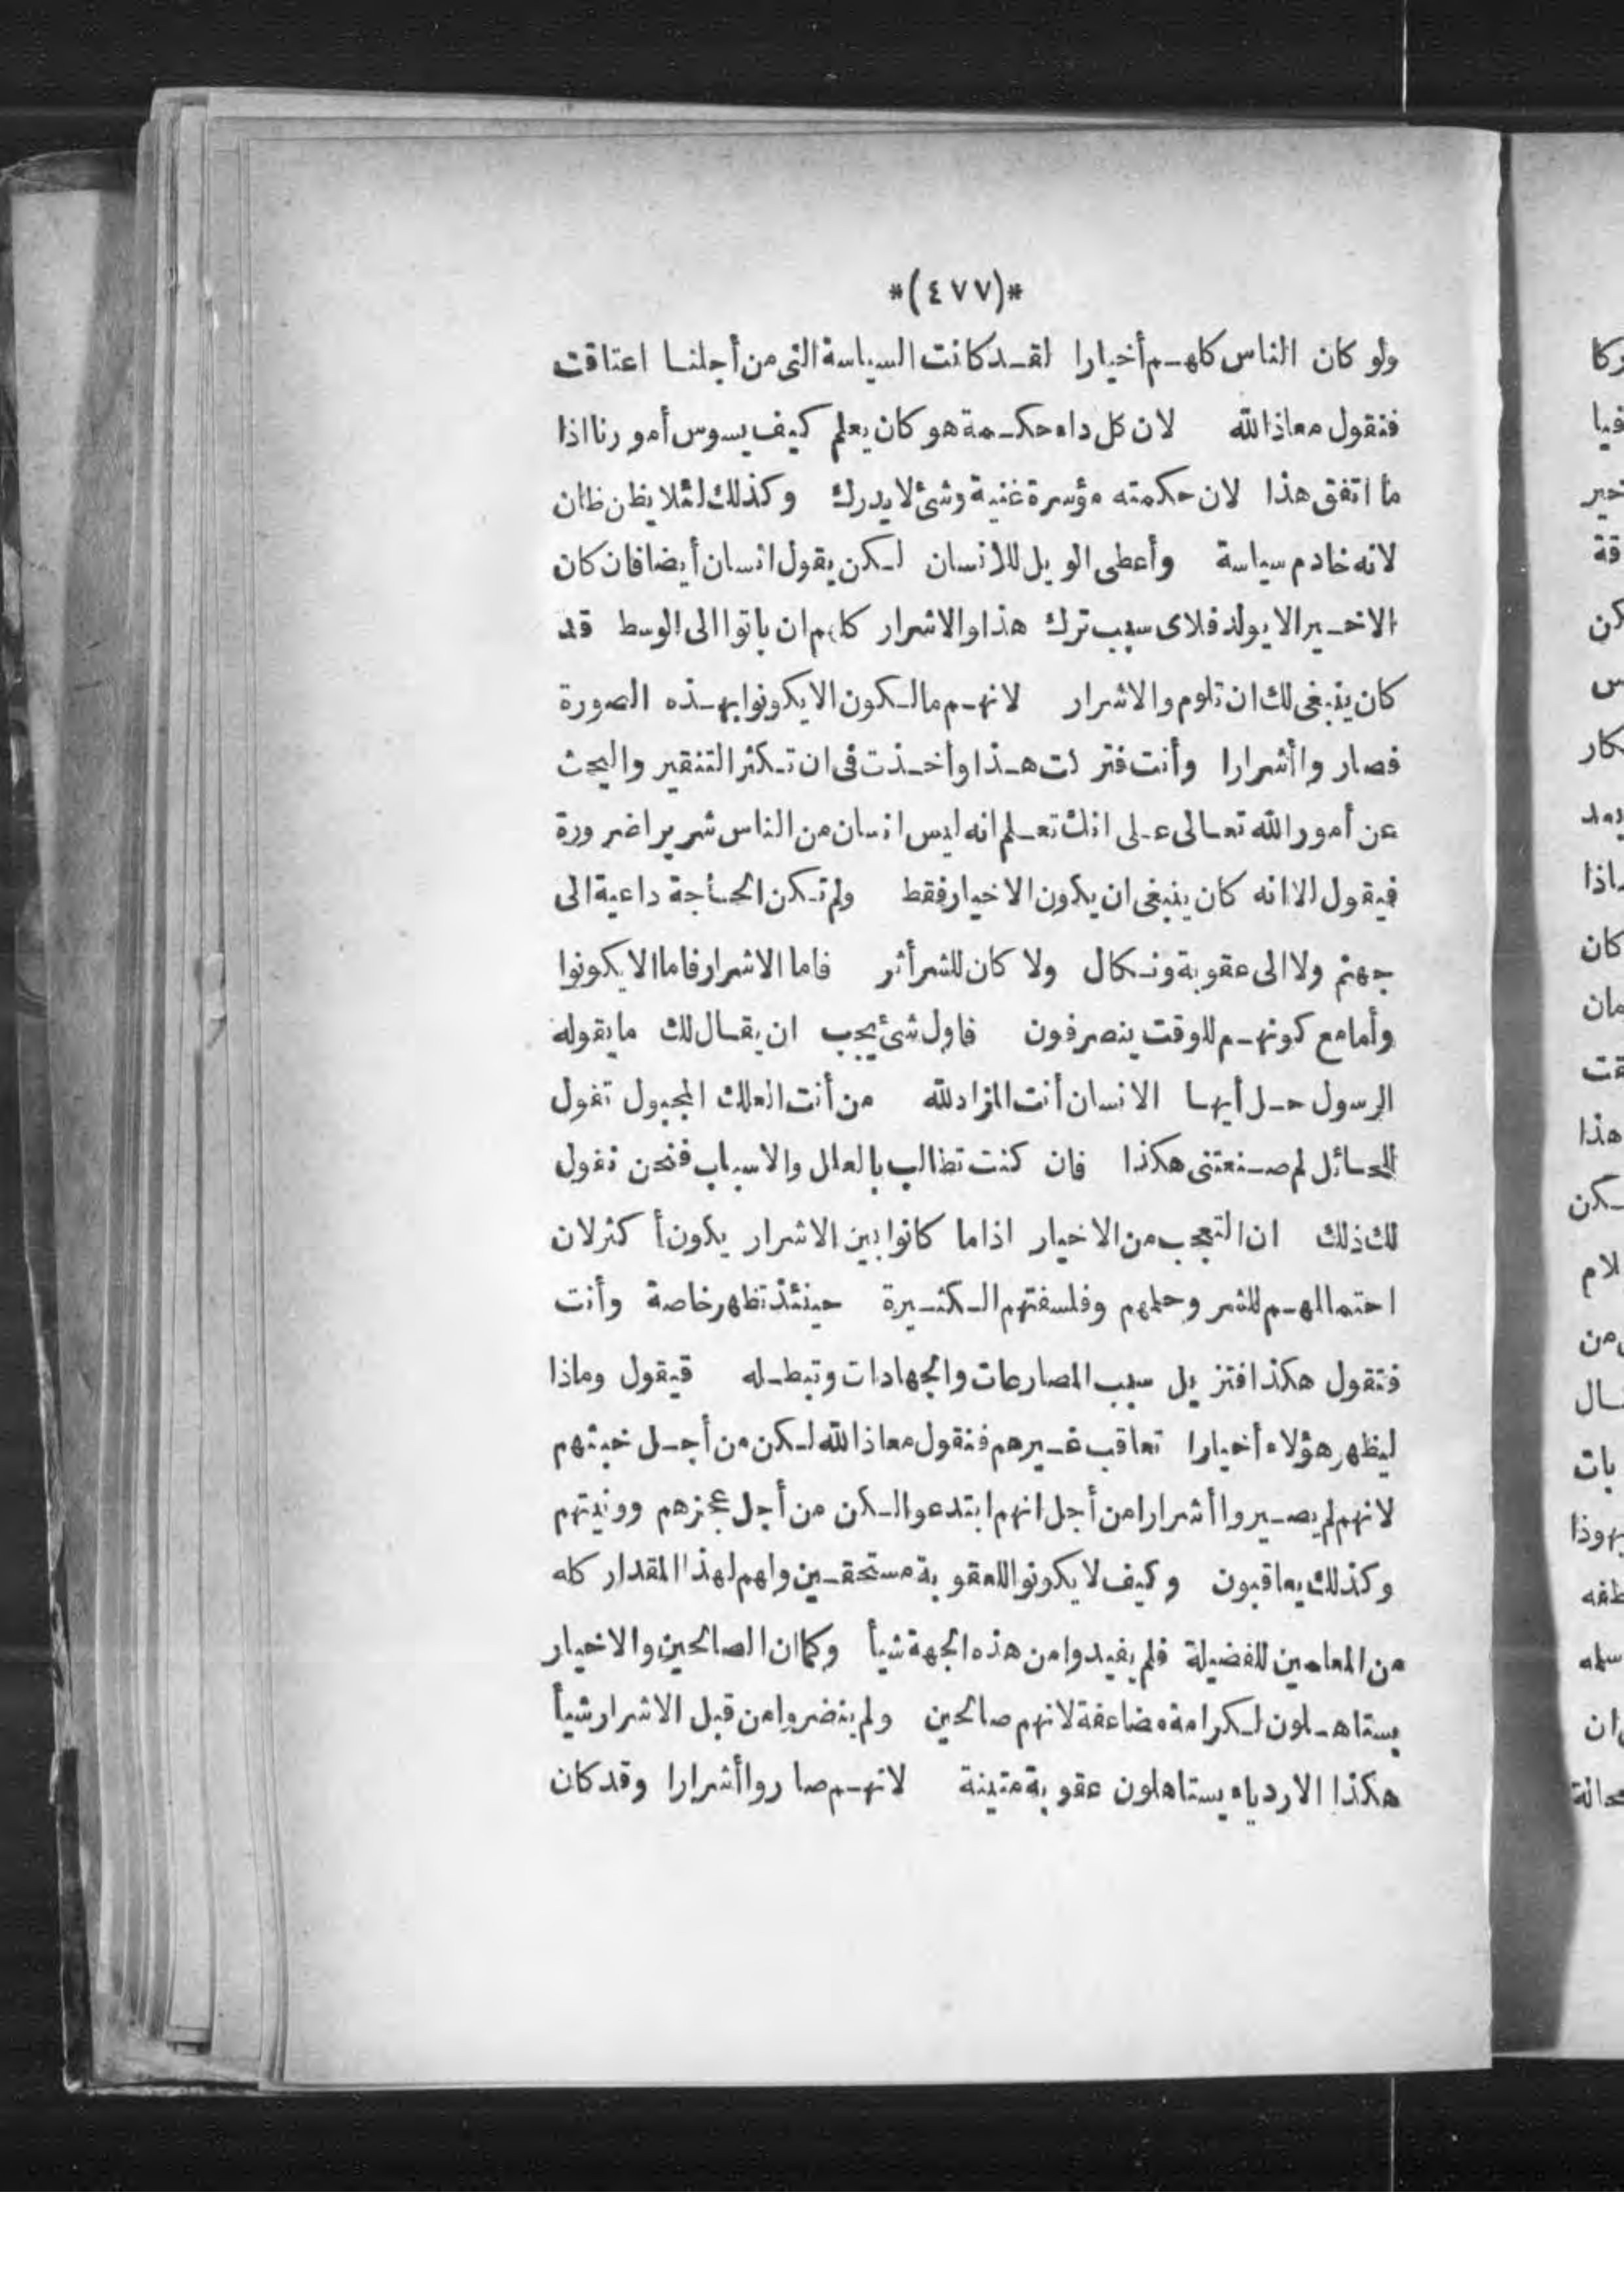 *(٤٧٧)*
ولو كان الناس كلهم أخيارا لقد كانت السياسة التى من أجلنا اعتاقت
فنقول معاذ الله لان كل داء حكمة هو كان يعلم كيف يسوس أمورنا اذا
ما اتفق هذا لان حكمته مؤسرة غنية وشئ لا يدرك وكذلك لئلا يظن ظان
لانه خادم سياسة وأعطى الويل للانسان لكن يقول انسان أيضا فان كان
الاخير الا يولد فلاى سبب ترك هذا والاشرار كلهم ان ياتوا الى الوسط قد
كان ينبغى لك ان تلوم والاشرار لانهم مالكون الا يكونوا بهذه الصورة
فصاروا أشرارا وأنت فتركت هذا وأخذت فى ان تكثر التنقير والبحث
عن أمور الله تعالى على انك تعلم انه ليس انسان من الناس شريرا ضرورة
فيقول الا انه كان ينبغى ان يكون الاخيار فقط ولم تكن الحاجة داعية الى
جهنم ولا الى عقوبة ونكال ولا كان للشر أثر فاما الاشرار فاما الا يكونوا
وأما مع كونهم للوقت ينصرفون فاول شئ يجب ان يقال لك ما يقوله
الرسول حل أيها الانسان أنت المزاد لله من أنت العلك المجبول تقول
للحائل لم صنعتنى هكذا فان كنت تطالب بالعلل والاسباب فنحن نقول
لك ذلك ان التعجب من الاخيار اذا ما كانوا بين الاشرار يكون أكثر لان
احتمالهم للشر وحلمهم وفلسفتهم الكثيرة حينئذ تظهر خاصة وأنت
فتقول هكذا فتزيل سبب المصارعات والجهادات وتبطله فيقول وماذا
ليظهر هؤلاء أخيارا تعاقب غيرهم فنقول معاذ الله لكن من أجل خبثهم
لانهم لم يصيروا أشرارا من أجل انهم ابتدعوا لكن من أجل عجزهم وونيتهم
وكذلك يعاقبون وكيف لا يكونوا للعقوبة مستحقين ولهم لهذا المقدار كله
من المعلمين للفضيلة فلم يفيدوا من هذه الجهة شيأ وكما ان الصالحين والاخيار
يستاهلون لكرامة مضاعفة لانهم صالحين ولم ينضروا من قبل الاشرار شيأ
هكذا الاردياء يستاهلون عقوبة متينة لانهم صاروا أشرارا وقد كان